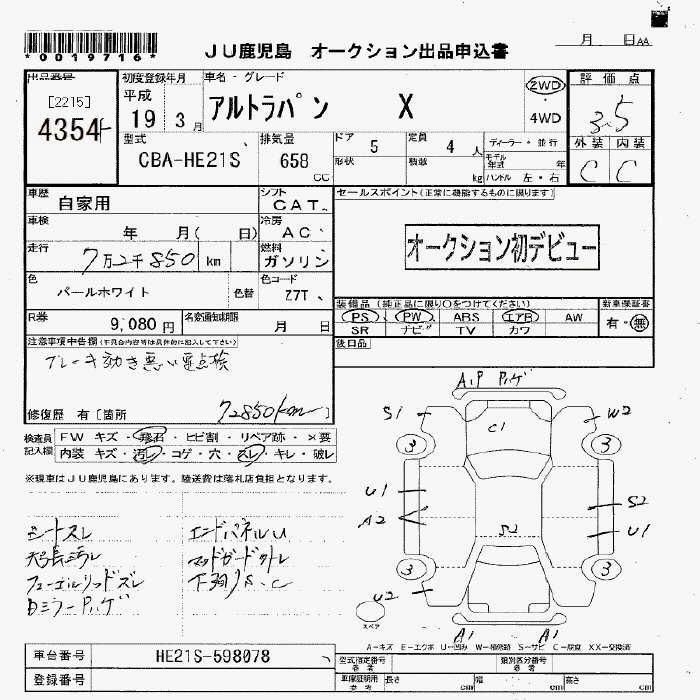 *0019716*
JU鹿児島 オークション出品申込書
月 日 AA
出品番号
[2215]
4354
初度登録年月
平成
19 3月
車名・グレード
アルトラパン X
2WD
・
4WD
評価点
3.5
外装 内装
C C
型式
CBA-HE21S
排気量
658
CC
ドア 5
形状
定員 4 人
積載 kg
ディーラー・並行
モデル年式 年
ハンドル 左・右
車歴
自家用
シフト
CAT
セールスポイント(正常に機能するものに限ります)
オークション初デビュー
車検
年 月( 日)
冷房
AC
走行
7万2千850 km
燃料
ガソリン
色
パールホワイト
色替
色コード
Z7T
装備品(純正品に限り○をつけてください)
PS PW ABS エアB AW
SR ナビ TV カワ
新車保証書
有・無
R券
9,080円
名変通知期限
月 日
後日品
注意事項申告欄(不具合内容等は具体的に記入して下さい)
ブレーキ効き悪い要点検
修復歴 有[箇所
72850km
検査員記入欄
FW キズ・飛石・ヒビ割・リペア跡・X要
内装 キズ・汚レ・コゲ・穴・スレ・キレ・破レ
※現車はJU鹿児島にあります。陸送費は落札店負担となります。
シートスレ
エンドパネルU
フューエルリッドズレ
下廻りS.C
A.P ハゲ
S1
C1
W2
3 3
U1
A2
S2
S2
U1
3 3
U2
スペア
A1 A1
A-キズ E-エクボ U-凹み W-補修跡 S-サビ C-腐食 XX-交換済
車台番号 HE21S-598078
登録番号
型式指定番号 参考
類別区分番号 参考
車庫証明用 参考
長さ cm 幅 cm 高さ cm